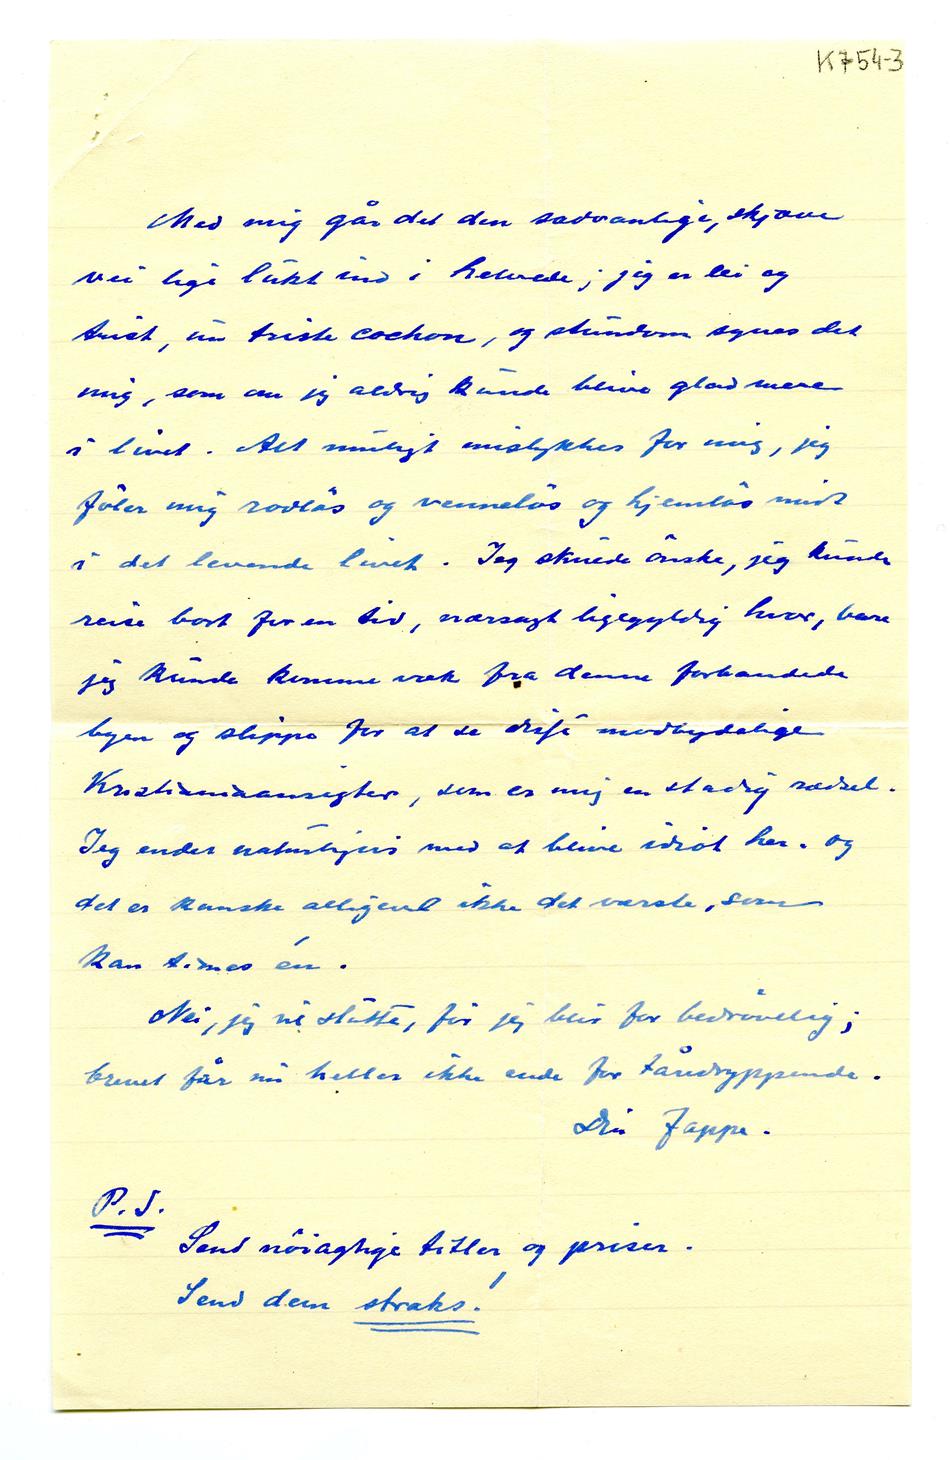 K754-3
Med mig går det den sædvanlige, skjæve
vei lige lükt ind i helvede; jeg er lei og
trist, ün triste cochon, og stündom synes det
mig, som om jeg aldrig künde blive glad mere
i livet. Alt müligt mislykkes for mig, jeg
föler mig rodlös og vennelös og hjemlös midt
i det levende livet. Jeg skülde önske, jeg künde
reise bort for en tid, nærsagt ligegyldig hvor, bare
jeg künde komme væk fra denne forbandede
byen og slippe for at se disse modbydelige
Kristianiaansigter, som er mig en stadig rædsel.
Jeg ender natürligvis med at blive idiot her. og
det er kanske alligevel ikke det værste, som
kan times én.
Nei, jeg vil slütte, för jeg blir for bedrövelig;
brevet får nü heller ikke ende for tåredryppende.
Din Jappe.
P.S.
Send nöiagtige titler og priser.
Send dem straks!